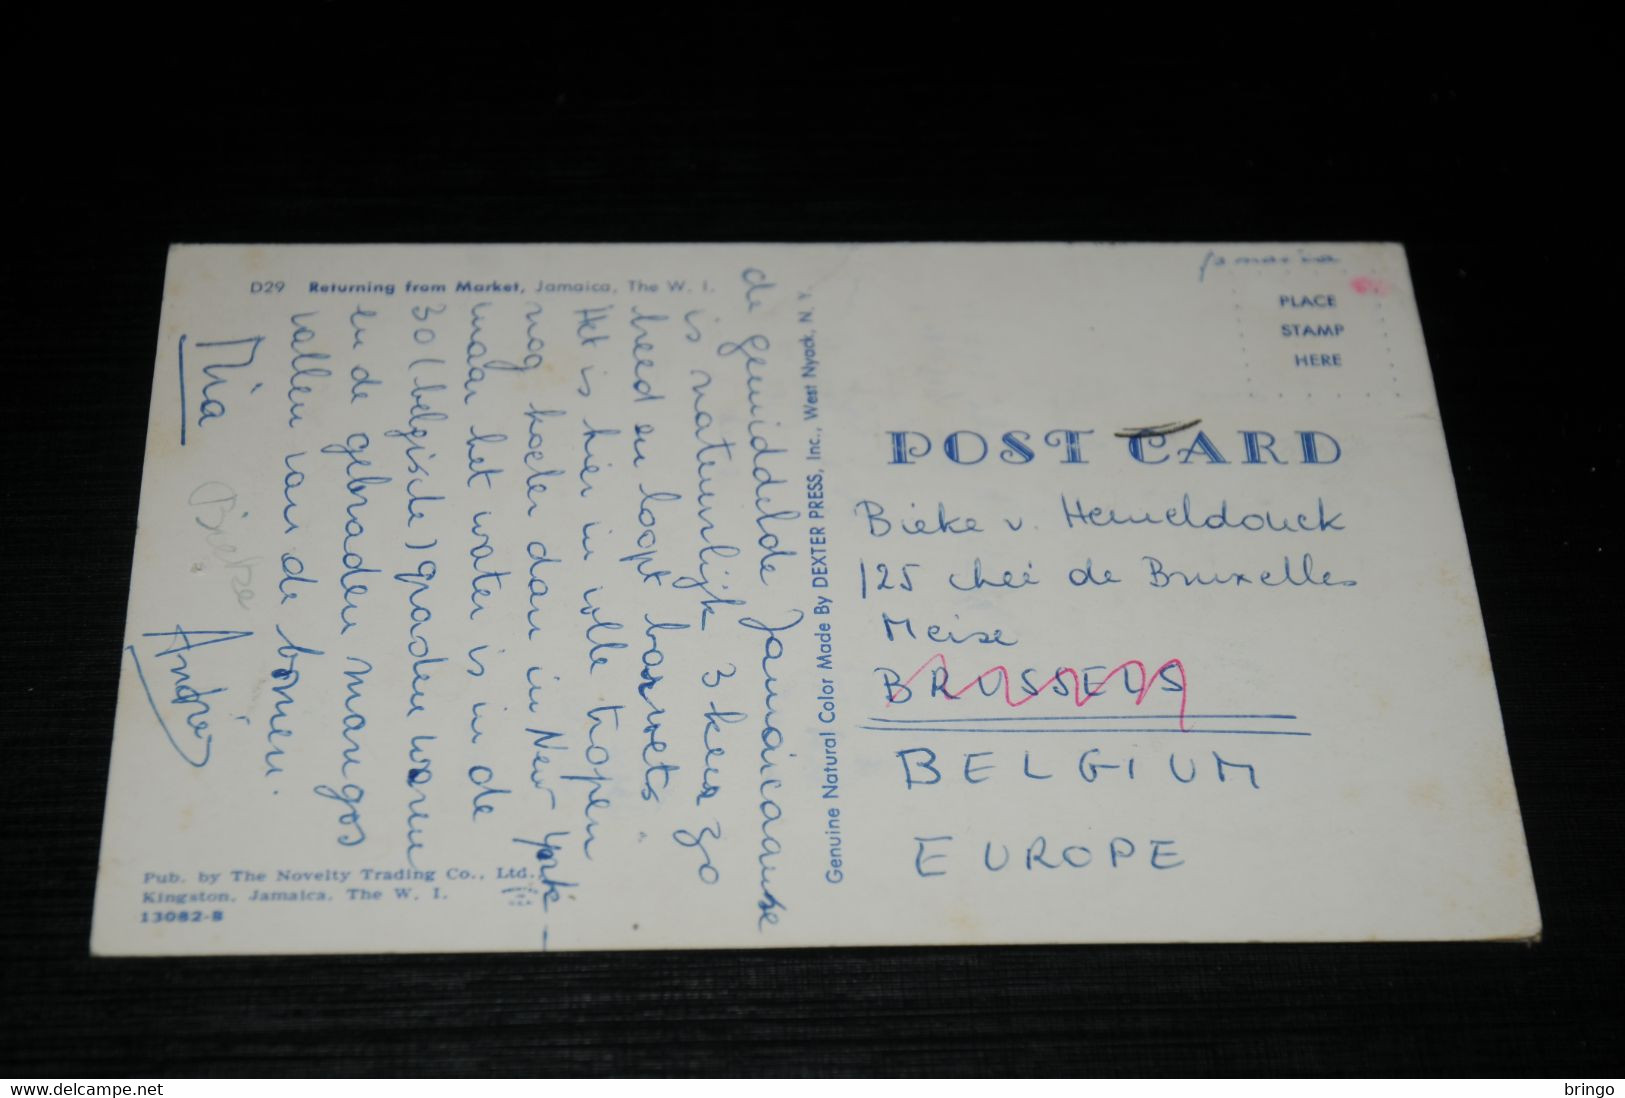 D29 Returning from Market, Jamaica, The W. I.
de gemiddelde Jamaicaanse
is natuurlijk 3 keer zo
breed en loopt barvoets.
Het is hier in volle tropen
nog koeler dan in New York -
maar het water is in de
30 (belgische) graden warm
en de gebraden mangos
vallen van de bomen.
Mia
Bieke
Andries
Pub. by The Novelty Trading Co., Ltd.,
Kingston, Jamaica, The W. I.
13082-B
Genuine Natural Color Made By DEXTER PRESS, Inc., West Nyack, N. Y.
Jamaica
PLACE
STAMP
HERE
POST CARD
Bieke v. Hemeldonck
125 chée de Bruxelles
Meise
BRUSSELS
BELGIUM
EUROPE
www.delcampe.net
bringo